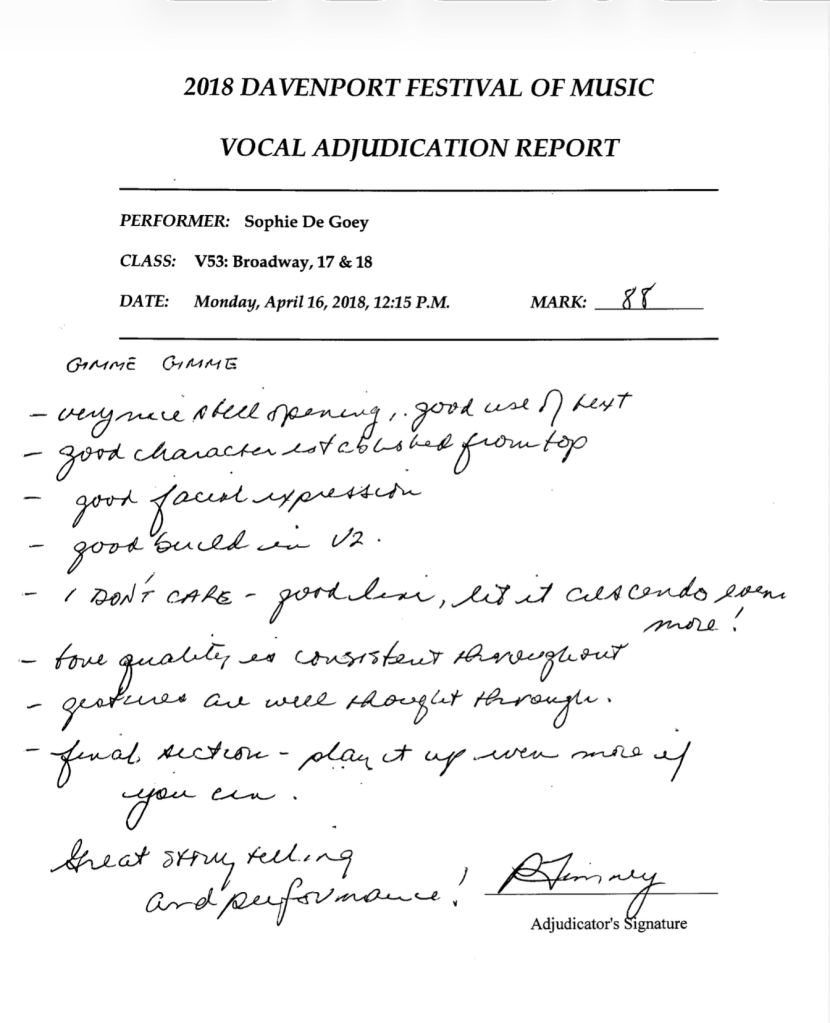 2018 DAVENPORT FESTIVAL OF MUSIC
VOCAL ADJUDICATION REPORT
PERFORMER: Sophie De Goey
CLASS: V53: Broadway, 17 & 18
DATE: Monday, April 16, 2018, 12:15 P.M. MARK: 88
GIMME GIMME
- very nice still opening, good use of text
- good character established from top
- good facial expression
- good build in V2.
- I DON'T CARE - good line, let it crescendo even
more!
- tone quality is consistent throughout
- gestures are well thought through.
- final section - play it up even more if
you can.
Great story telling
and performance!
Adjudicator's Signature